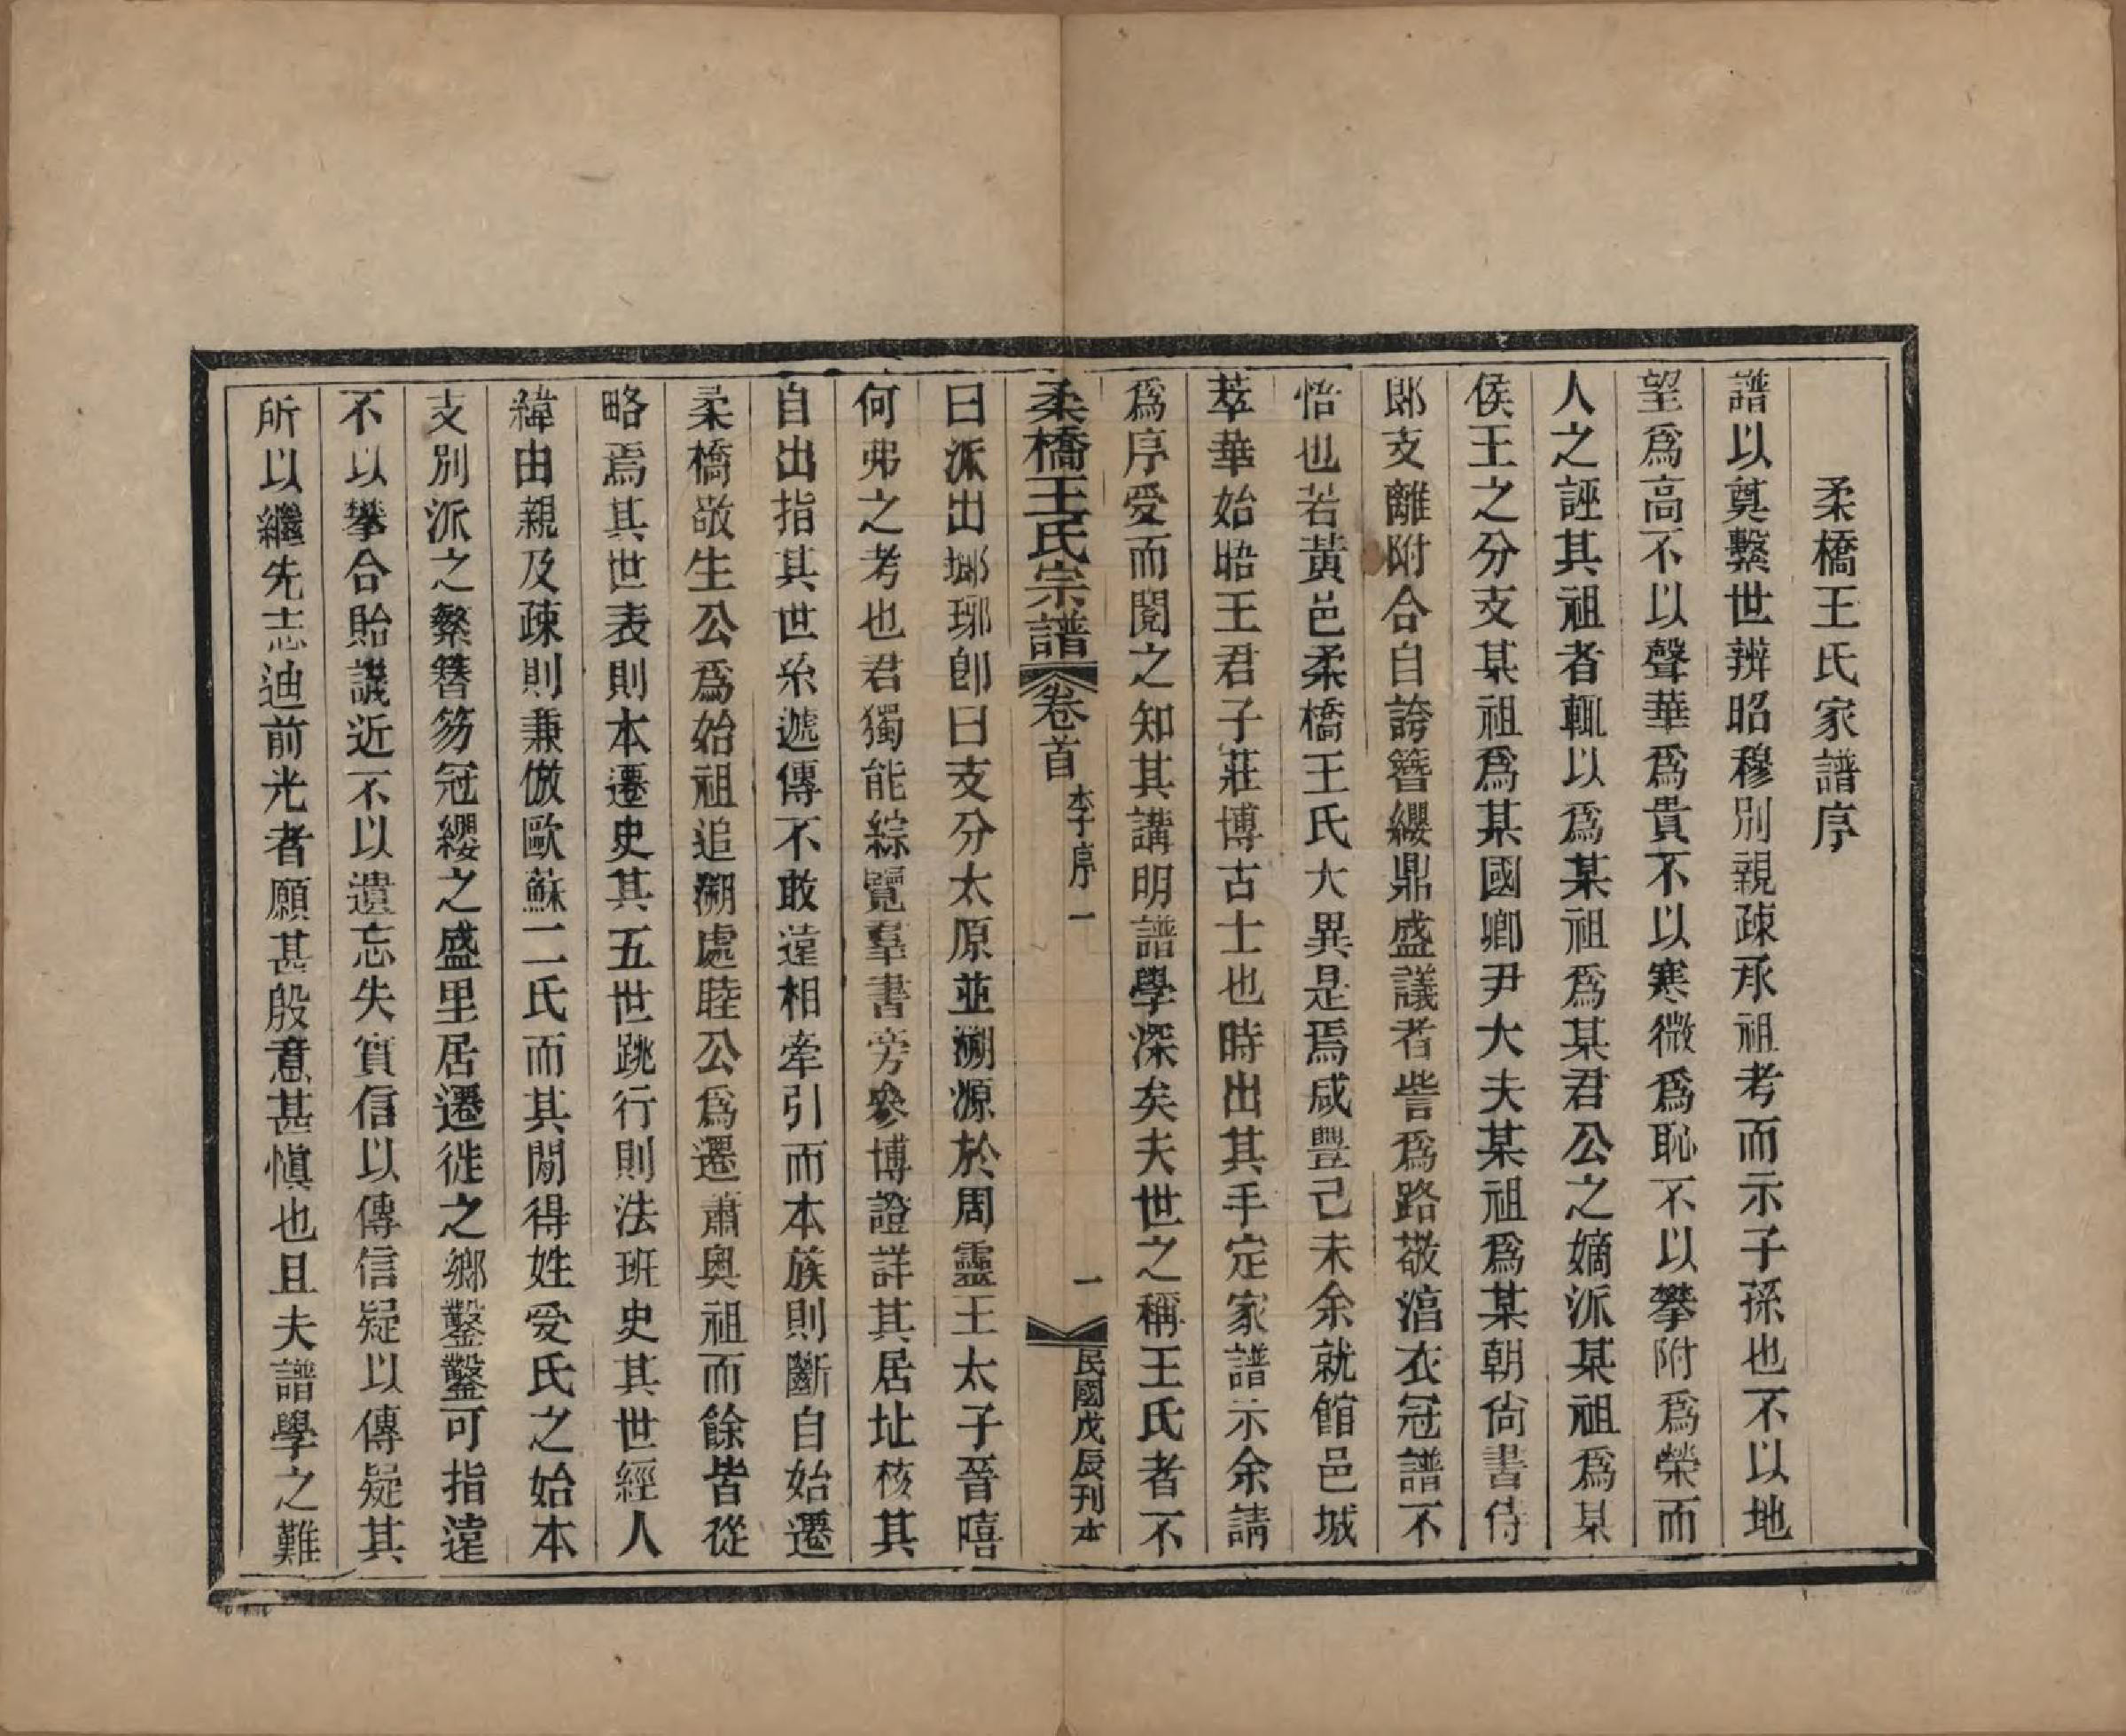 柔橋王氏家譜序
譜以奠繫世辨昭穆別親疎承祖考而示子孫也不以地
望爲高不以聲華爲貴不以寒微爲恥不以攀附爲榮而
人之誣其祖者輒以爲某祖爲某君公之嫡派某祖爲某
侯王之分支某祖爲某國卿尹大夫某祖爲某朝尙書侍
郎支離附合自誇簪纓鼎盛議者訾爲路歊湻衣冠譜不
怡也若黃邑柔橋王氏大異是焉咸豐己未余就館邑城
萃華始晤王君子莊博古士也時出其手定家譜示余請
爲序受而閱之知其講明譜學深矣夫世之稱王氏者不
柔橋王氏宗譜 卷首 李序一 一 民國戊辰刊本
曰派出瑯琊卽曰支分太原並溯源於周靈王太子晉嘻
何弗之考也君獨能綜覽羣書旁參博證詳其居址核其
自出指其世系遞傳不敢遠相牽引而本族則斷自始遷
柔橋敬生公爲始祖追溯處睦公爲遷蕭奧祖而餘皆從
略焉其世表則本遷史其五世跳行則法班史其世經人
緯由親及疎則兼倣歐蘇二氏而其閒得姓受氏之始本
支別派之繁簪笏冠纓之盛里居遷徙之鄉鑿鑿可指遠
不以攀合貽譏近不以遺忘失實信以傳信疑以傳疑其
所以繼先志迪前光者願甚殷意甚愼也且夫譜學之難